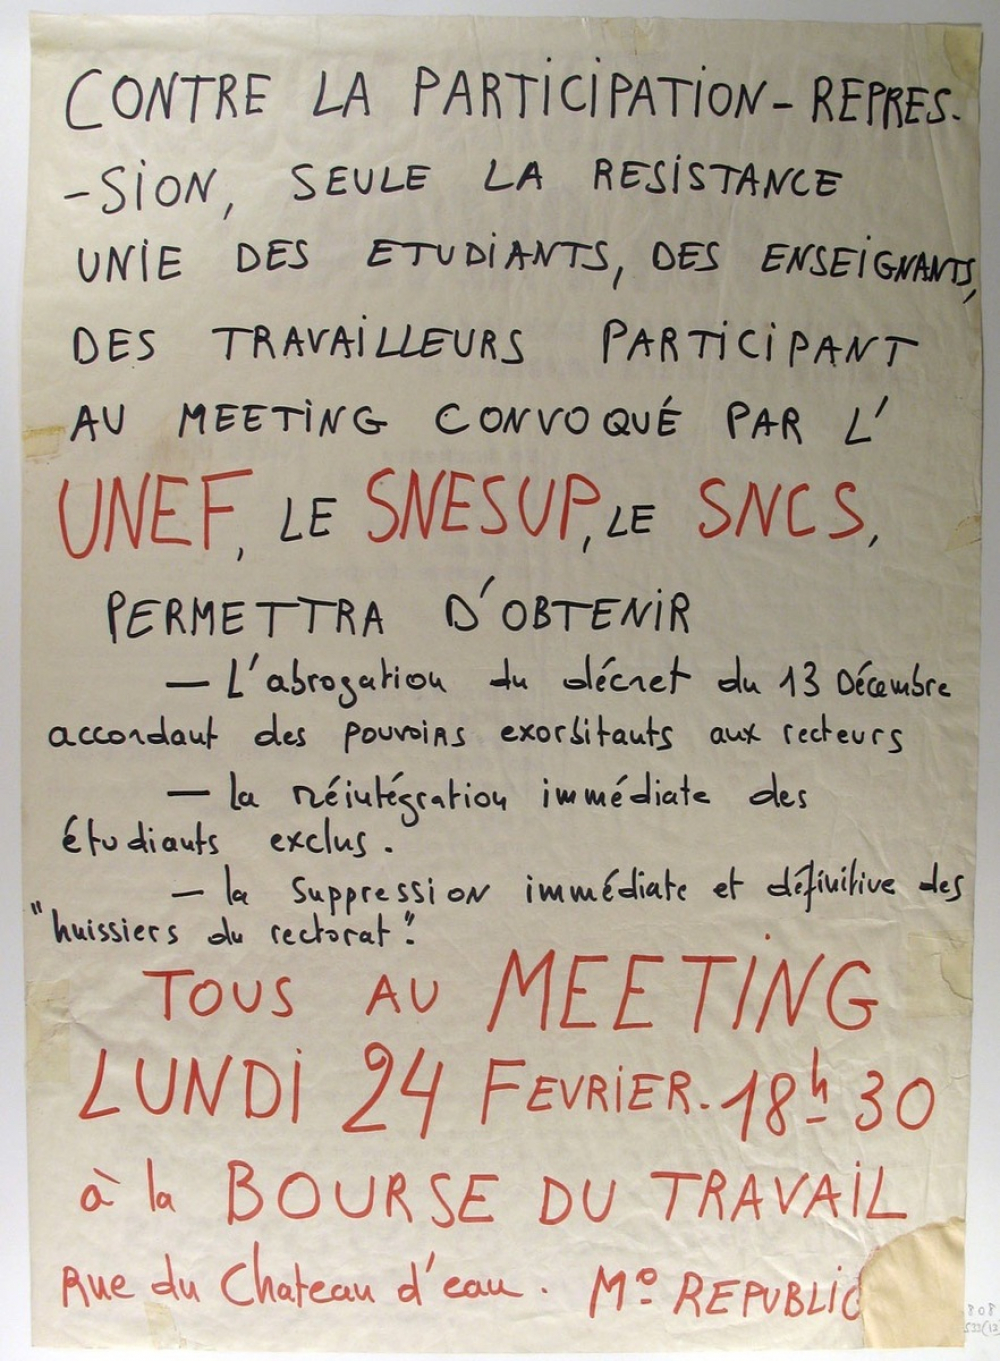 CONTRE LA PARTICIPATION - REPRES-
-SION, SEULE LA RESISTANCE
UNIE DES ETUDIANTS, DES ENSEIGNANTS,
DES TRAVAILLEURS PARTICIPANT
AU MEETING CONVOQUÉ PAR L'
UNEF, LE SNESUP, LE SNCS,
PERMETTRA D'OBTENIR
— L'abrogation du décret du 13 Décembre
accordant des pouvoirs exorbitants aux recteurs
— la réintégration immédiate des
étudiants exclus.
— la suppression immédiate et définitive des
"huissiers du rectorat".
TOUS AU MEETING
LUNDI 24 FEVRIER. 18h 30
à la BOURSE DU TRAVAIL
Rue du Chateau d'eau. Mº REPUBLIC
808